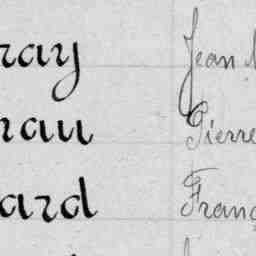 ray Jean
rau Pierre
ard Franc